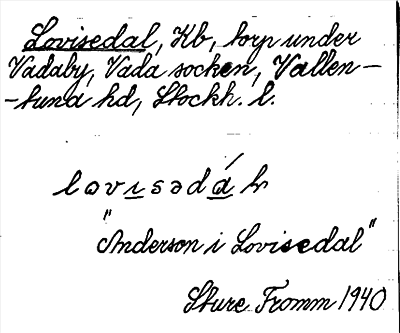 Lovisedal, Kb, torp under
Vadaby, Vada socken, Vallen-
-tuna hd, Stockh. l.
lovisədál
"Anderson i Lovisedal"
Sture Fromm 1940